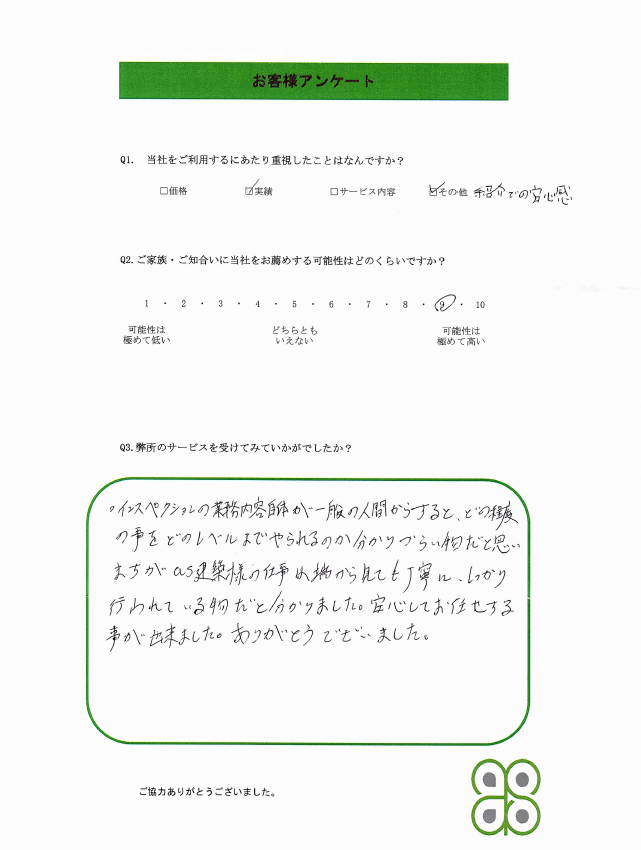 お客様アンケート
Q1. 当社をご利用するにあたり重視したことはなんですか？
□価格 ☑実績 □サービス内容 ☑その他 紹介での安心感
Q2.ご家族・ご知合いに当社をお薦めする可能性はどのくらいですか？
1 ・ 2 ・ 3 ・ 4 ・ 5 ・ 6 ・ 7 ・ 8 ・ 9 ・ 10
可能性は どちらとも 可能性は
極めて低い いえない 極めて高い
Q3.弊所のサービスを受けてみていかがでしたか？
・インスペクションの業務内容自体が一般の人間からすると、どの程度
の事をどのレベルまでやられるのか分かりづらい物だと思い
ますが as建築様の仕事は端から見ても丁寧に、しっかり
行われている物だと分かりました。安心してお任せする
事が出来ました。ありがとうございました。
ご協力ありがとうございました。